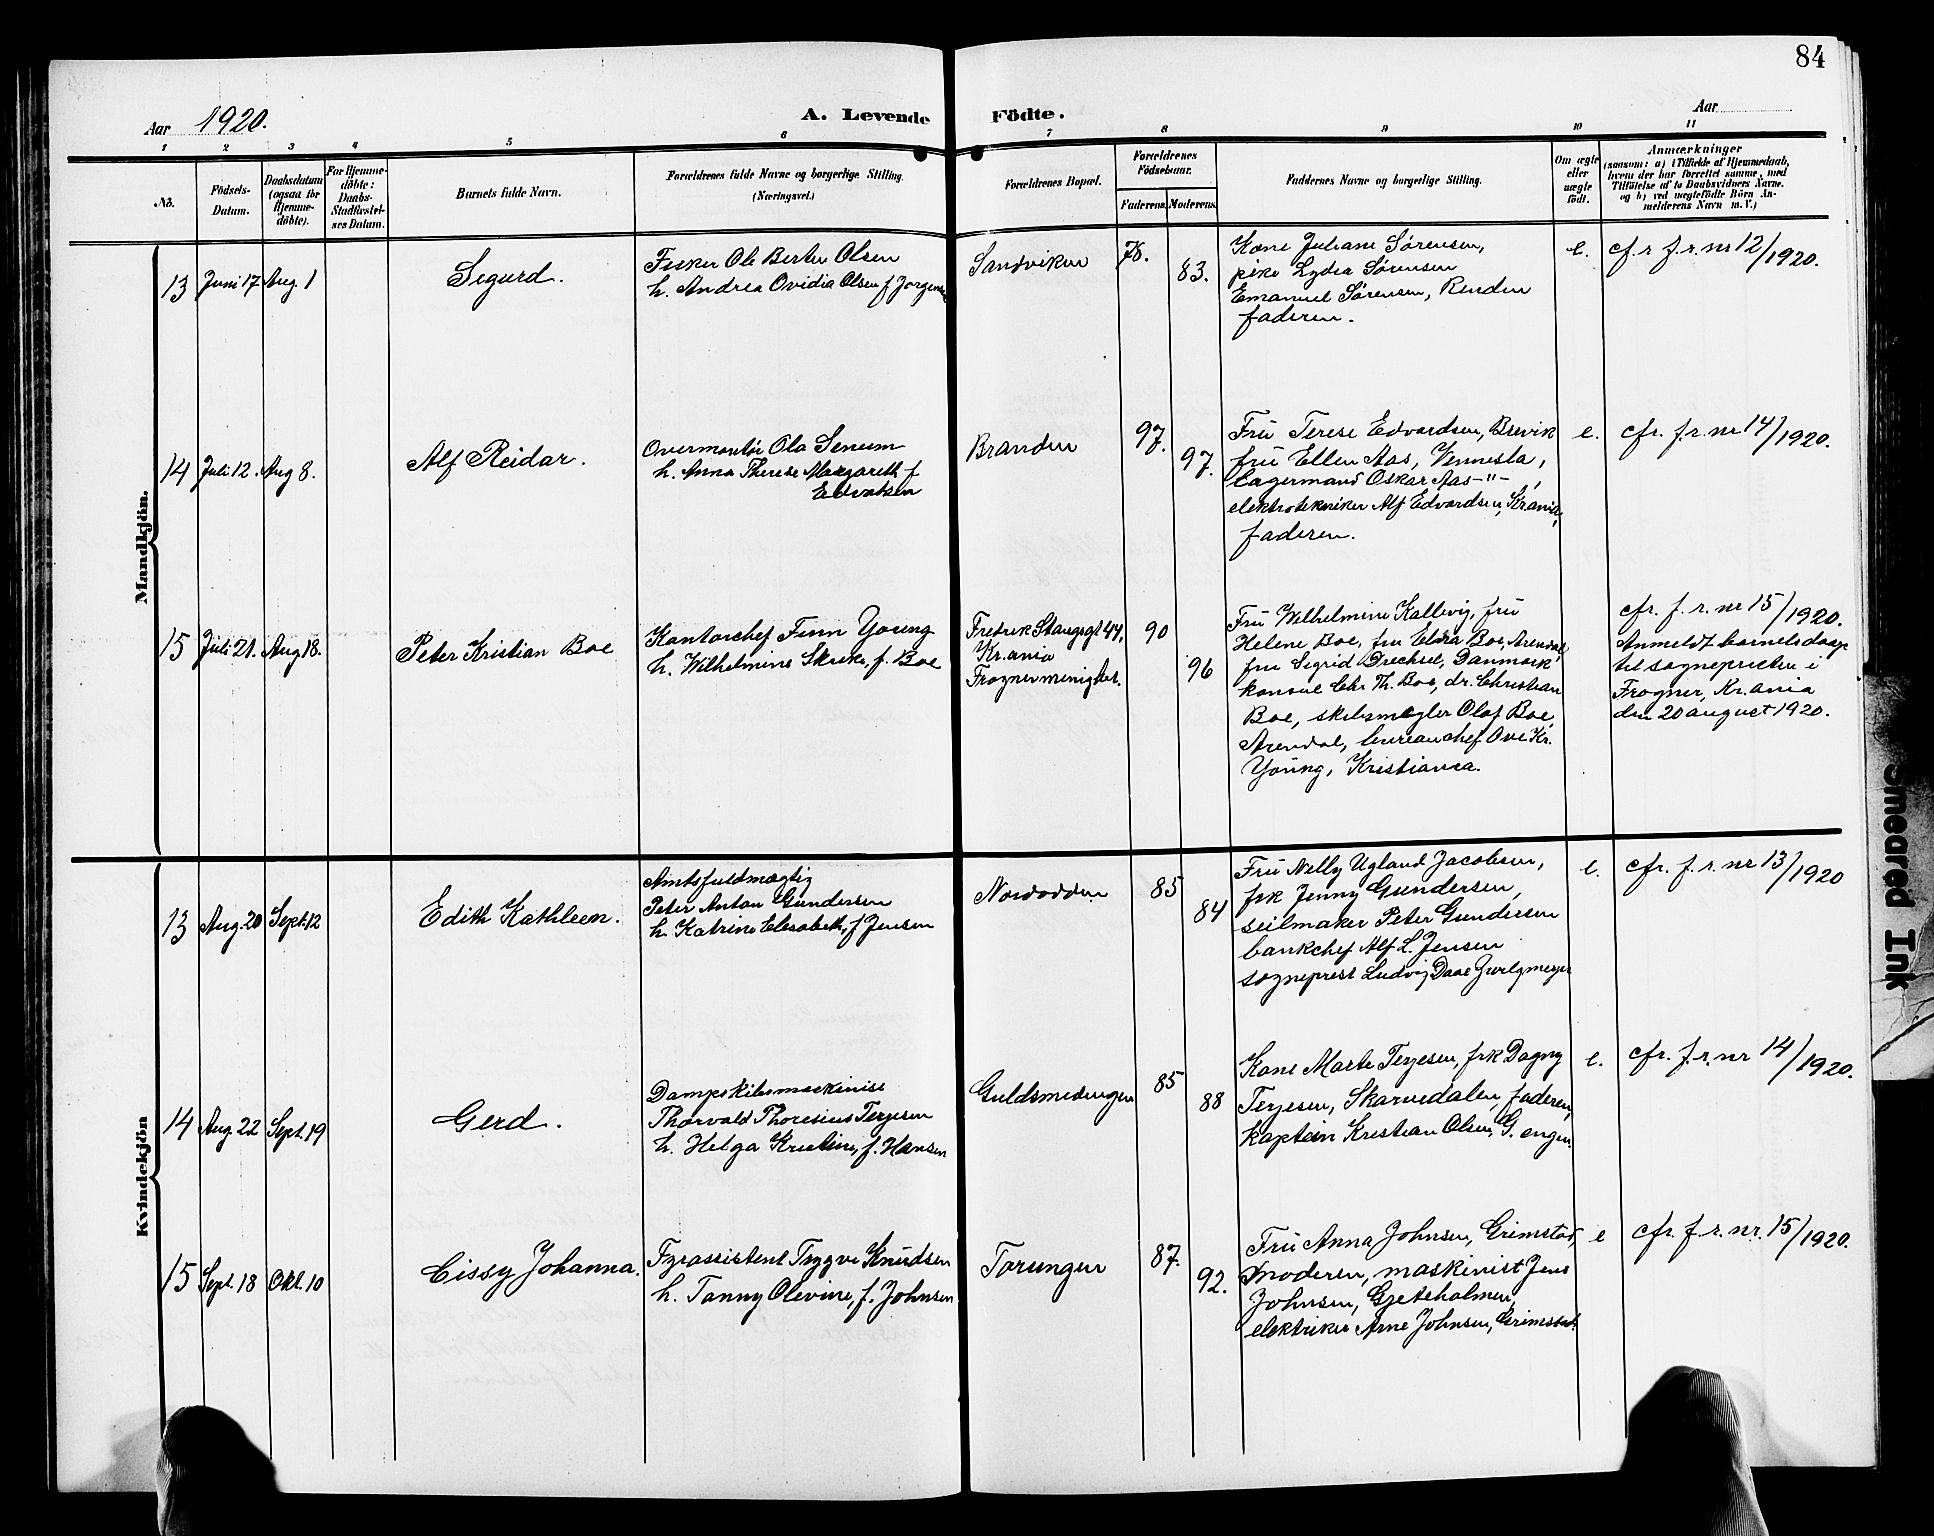 84
Aar 1920.
A. Levende Födte.
Aar
1 2 3 4 5 6 7 8 9 10 11
No.
Födsels-Datum.
Daabsdatum (ogsaa for Hjemme-döbte).
For Hjemme-döbte: Daabs-Stadfæstel-ses Datum.
Barnets fulde Navn.
Forældrenes fulde Navne og borgerlige Stilling. (Næringsvei.)
Forældrenes Bopæl.
Forældrenes Födselsaar.
Faderens. Moderens.
Faddernes Navne og borgerlige Stilling.
Om ægte eller uægte födt.
Anmærkninger
(saasom: a) i Tilfælde af Hjemmedaab,
hvem der har forrettet samme, med
Tilföielse af to Daabsvidners Navne.
og b) ved uægtefödte Börn An-
melderens Navn m. V.)
Mandkjön.
13 Juni 17 Aug. 1
Sigurd.
Fisker Ole Bertin Olsen
h. Andrea Ovidia Olsen f Jørgensen
Sandviken
78.
83.
Kone Juliane Sørensen,
pike Lydia Sørensen
Emanuel Sørensen, Renden
faderen.
e.
cf. r f. r. nr 12/1920.
14 Juli 12. Aug 8.
Alf Reidar.
Overmontør Ola Senum
h. Anna Therese Margareth f
Edvardsen
Branden
97.
97.
Fru Terese Edvardsen, Brevik
fru Ellen Aas, Vennesla,
lagermand Oskar Aas -"-,
elektrotekniker Alf Edvardsen, Kr.ania,
faderen.
e.
cfr. f. r. nr 14/1920.
15 Juli 21. Aug. 18.
Peter Kristian Boe
Kontorchef Finn Young
h. Wilhelmine Skrike, f. Boe
Fredrik Stangsgt 44,
Kr.ania
Frogner menighet.
90
96
Fru Wilhelmine Kallevig, fru
Helene Boe, fru Elvira Boe, Arendal,
fru Sigrid Drechsel, Danmark,
konsul Chr. Th. Boe, dr. Christian
Boe, skibsmægler Olaf Boe,
Arendal, bureauchef Ove Kr.
Young, Kristiania.
cfr. f. r. nr 15/1920.
Anmeldt barnets daap
til sognepresten i
Frogner, Kr.ania
den 20 august 1920.
Kvindekjön
13 Aug. 20 Sept. 12
Edith Kathleen.
Amtsfuldmægtig
Peter Anton Gundersen
h. Katrine Elisabeth, f Jensen
Nordodden
85
84
Fru Nelly Ugland Jacobsen,
frk Jenny Gundersen,
seilmaker Peter Gundersen
bankchef Alf L. Jensen
sogneprest Ludvig Daae Zwilgmeyer
e.
cfr. f. r. nr 13/1920
14 Aug. 22 Sept. 19
Gerd.
Dampskibsmaskinist
Thorvald Thoresius Terjesen
h. Helga Kristine, f. Hansen
Guldsmedengen
85
88
Kone Marte Terjesen, frk Dagny
Terjesen, Skarvedalen, faderen,
kaptein Kristian Olsen, G. engen.
e.
cfr. f. r. nr 14/1920.
15 Sept. 18 Okt. 10
Cissy Johanna.
Fyrassistent Trygve Knudsen
h. Tanny Olevine, f. Johnsen
Torungen
87.
92.
Fru Anna Johnsen, Grimstad,
moderen, maskinist Jens
Johnsen, Gjeteholmen,
elektriker Arne Johnsen, Grimstad.
e
cfr. f. r. nr. 15/1920.
Smeared Ink